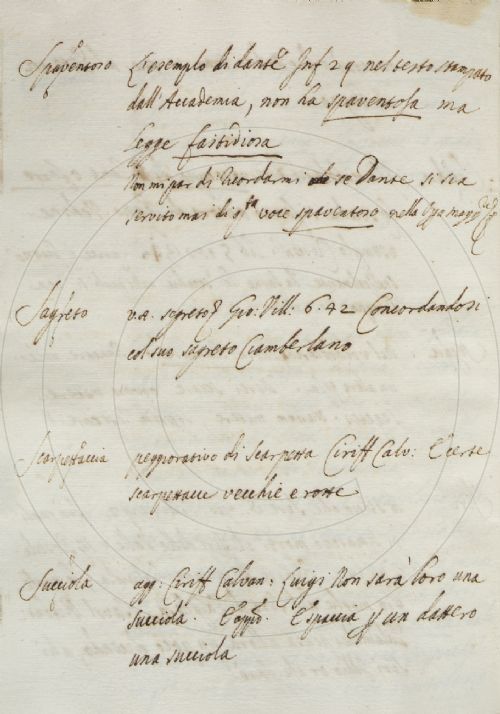 Spaventoso L'esemplo di dante Inf 29 nel testo stampato
dall'Accademia, non ha spaventosa ma
legge fastidiosa
Non mi par di ricordarmi se Dante si sia
servito mai di q.ta voce spaventoso nella
Sagreto v.A. segreto Gio: Vill: 6.42 Concordandosi
col suo sagreto Ciamberlano
Scarpettaccia peggiorativo di Scarpetta Ciriff Calv: E certe
scarpettacce vecchie e rotte
Succiola agg: Ciriff Calvan: Luigi: Non sarà loro una
succiola. E spaccia p un dattero
una succiola